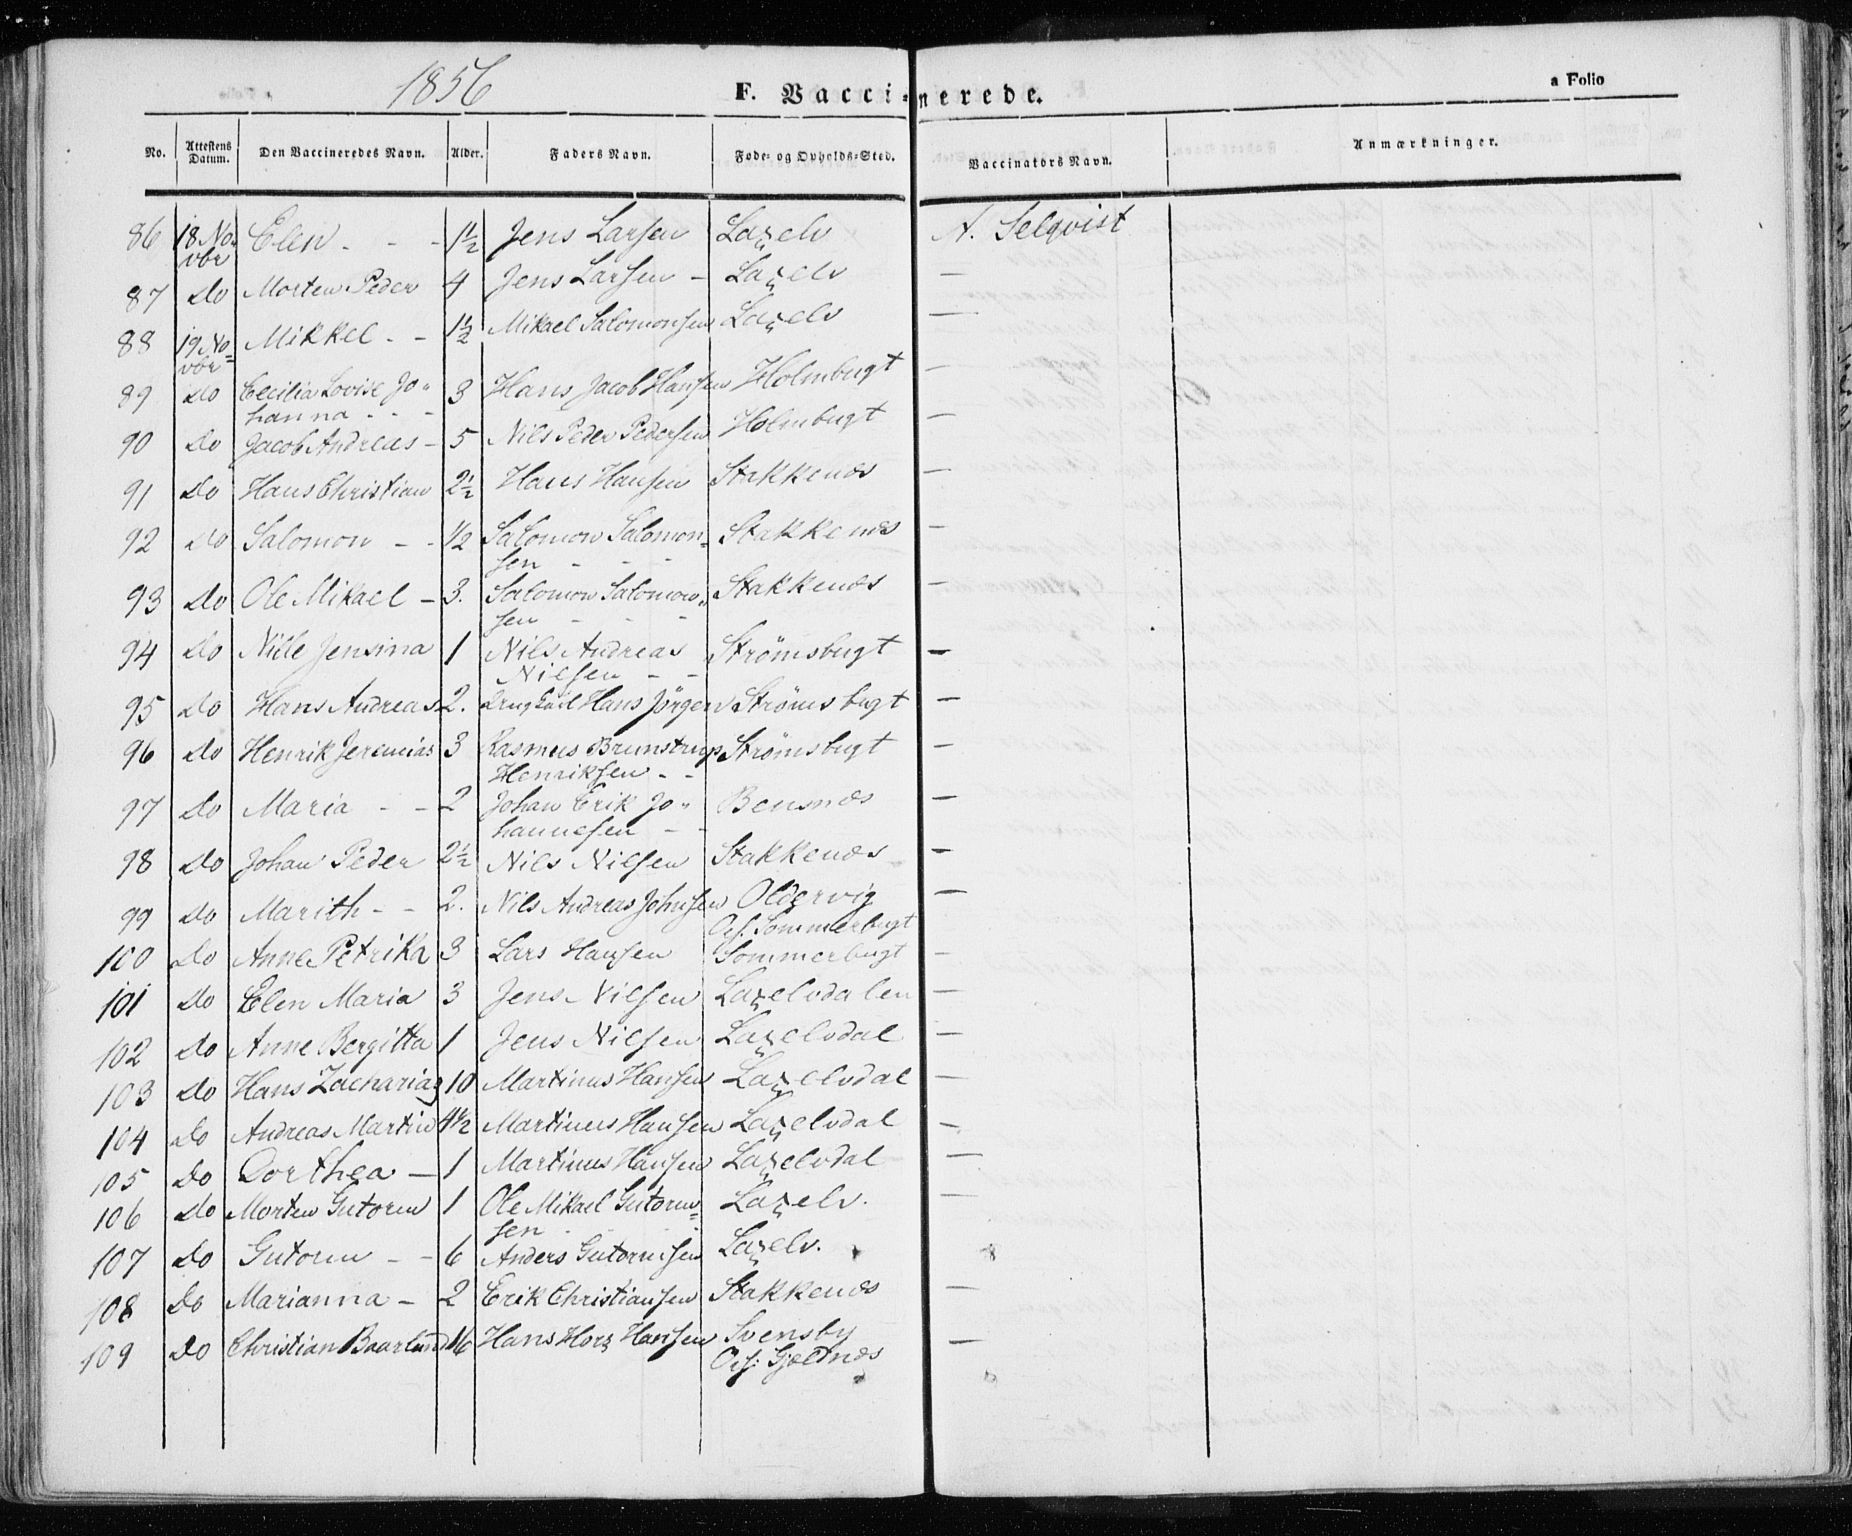 1856
F. Vaccinerede.
a Folio
No. Attestens Datum. Den Vaccineredes Navn. Alder. Faders Navn. Føde- og Opholds-Sted. Vaccinators Navn. Anmærkninger.
86 18 No- Elen - - - 1½ Jens Larsen Laxelv A. Selqvist
vbr
87 Do Morten Peder 4 Jens Larsen - Laxelv —
88 19 No- Mikkel - - 1½ Mikael Salomonsen Laxelv —
vbr
89 do Cecilia Lovise Jo- 3 Hans Jacob Hansen Holmbugt —
hanna - - -
90 Do Jacob Andreas - 5 Nils Peder Pedersen Holmbugt —
91 Do Hans Christian 2½ Hans Hansen Stakkenæs —
92 do Salomon - - ½ Salomon Salomon= Stakkenæs —
sen - - -
93 Do Ole Mikael - 3. Salomon Salomon- Stakkenæs —
sen - - -
94 Do Nille Jensina 1 Nils Andreas Strømsbugt —
Nilsen - -
95 do Hans Andreas 2. Hans Jörgen Strømsbugt —
96 Do Henrik Jeremias 3 Rasmus Brunstrup Strømsbugt —
Henriksen - -
97 Do Maria - - 2 Johan Erik Jo- Bensnæs —
hannesen - -
98 Do Johan Peder 2½ Nils Nilsen Stakkenæs —
99 Do Marith - - 2. Nils Andreas Johnsen Oldervig —
Sommerbugt
100 Do Anne Petrika 3 Lars Hansen Sommerbugt —
101 Do Elen Maria 3 Jens Nilsen Laxelvdalen —
102 Do Anne Bergitta 1 Jens Nilsen Laxelvdal —
103 Do Hans Zacharias 10 Martinus Hansen Laxelvdal —
104 Do Andreas Martin 4½ Martinus Hansen Laxelvdal —
105 Do Dorthea - 1 Martinus Hansen Laxelvdal —
106 do Morten Gutorm 1 Ole Mikael Gutorm= Laxelv. —
sen - - -
107 do Gutorm - - 6 Anders Gutormsen Laxelv.
108 Do Marianna - 2 Erik Christiansen Stakkenæs —
109 Do Christian Baarlund 16 Hans Hansen Svensby —
Gjeltnæs